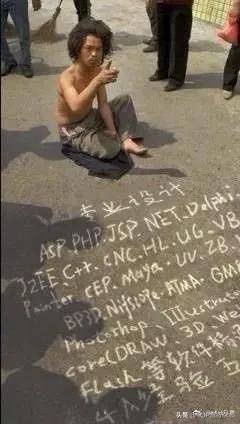 专业设计
ASP.PHP.JSP.NET.Delphi
J2EE.C++.CNC.HL.UG.VB
Painter.CEP.Maya.UV.ZB.
BP3D.Nifsiope.ATMA.GM
Photoshop.Illustrator
CorelDRAW.3D.We
Flash等软件
头条